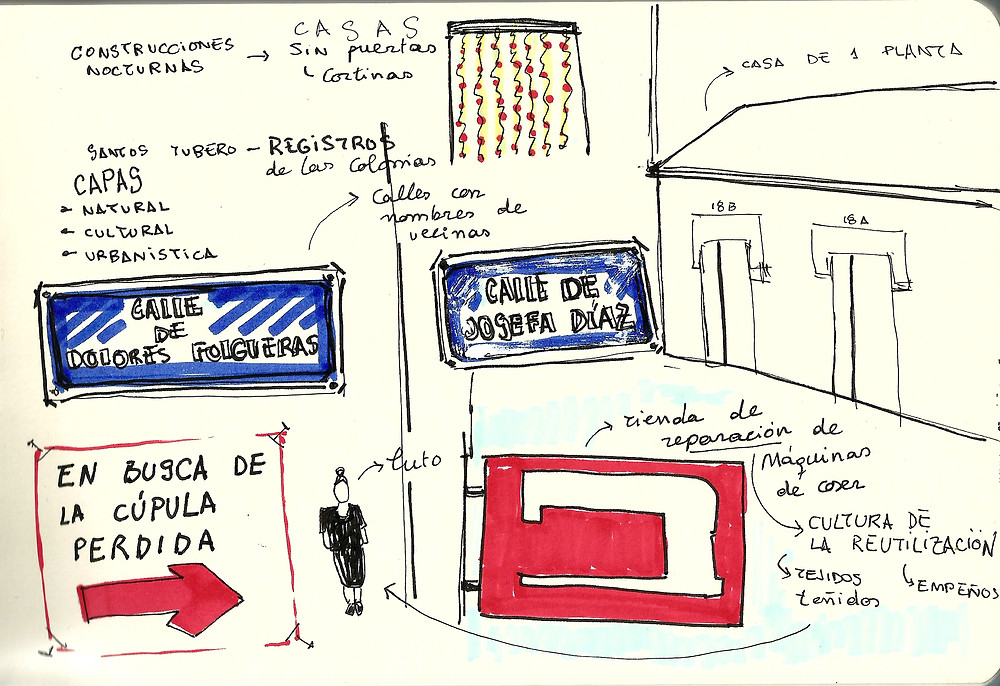 CONSTRUCCIONES
NOCTURNAS
CASAS
Sin puertas
Cortinas
CASA DE 1 PLANTA
SANTOS TUBERO - REGISTROS
de las Colonias
CAPAS
NATURAL
CULTURAL
URBANISTICA
Calles con
nombres de
vecinas
18B
18A
CALLE
DE
DOLORES FOLGUERAS
CALLE DE
JOSEFA DÍAZ
EN BUSCA DE
LA CÚPULA
PERDIDA
luto
tienda de
reparación de
Máquinas
de coser
CULTURA DE
LA REUTILIZACIÓN
TEJIDOS
teñidos
EMPEÑOS